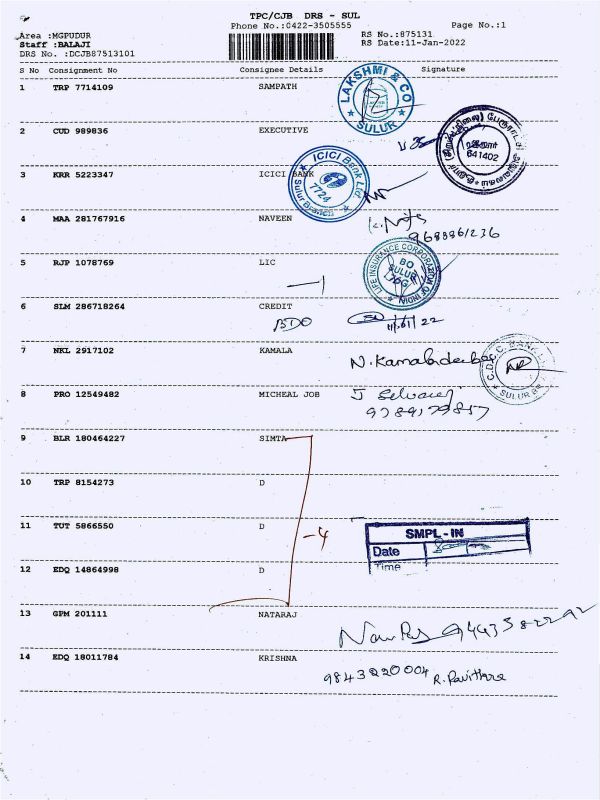 TPC/CJB DRS - SUL
Phone No.:0422-3505555
Page No.:1
Area :MGPUDUR
RS No.:875131
Staff :BALAJI
RS Date:11-Jan-2022
DRS No. :DCJB87513101
S No Consignment No Consignee Details Signature
1 TRP 7714109 SAMPATH
LAKSHMI & CO
SULUR
2 CUD 989836 EXECUTIVE
641402
3 KRR 5223347 ICICI BANK
ICICI Bank Ltd
7724
Sulur Branch
4 MAA 281767916 NAVEEN
9688861236
5 RJP 1078769 LIC
LIFE INSURANCE CORPORATION OF INDIA
BO
SULUR
6 SLM 286718264 CREDIT
BDO
11/01/22
7 NKL 2917102 KAMALA
N.
C.D.C.C. BANK
SULUR
8 PRO 12549482 MICHEAL JOB
J Selvaraj
9789179857
9 BLR 180464227 SIMTA
10 TRP 8154273 D
11 TUT 5866550 D
-4
SMPL-IN
Date
Time
12 EDQ 14864998 D
13 GPM 201111 NATARAJ
9443582292
14 EDQ 18011784 KRISHNA
9843220004 R. Pavithra